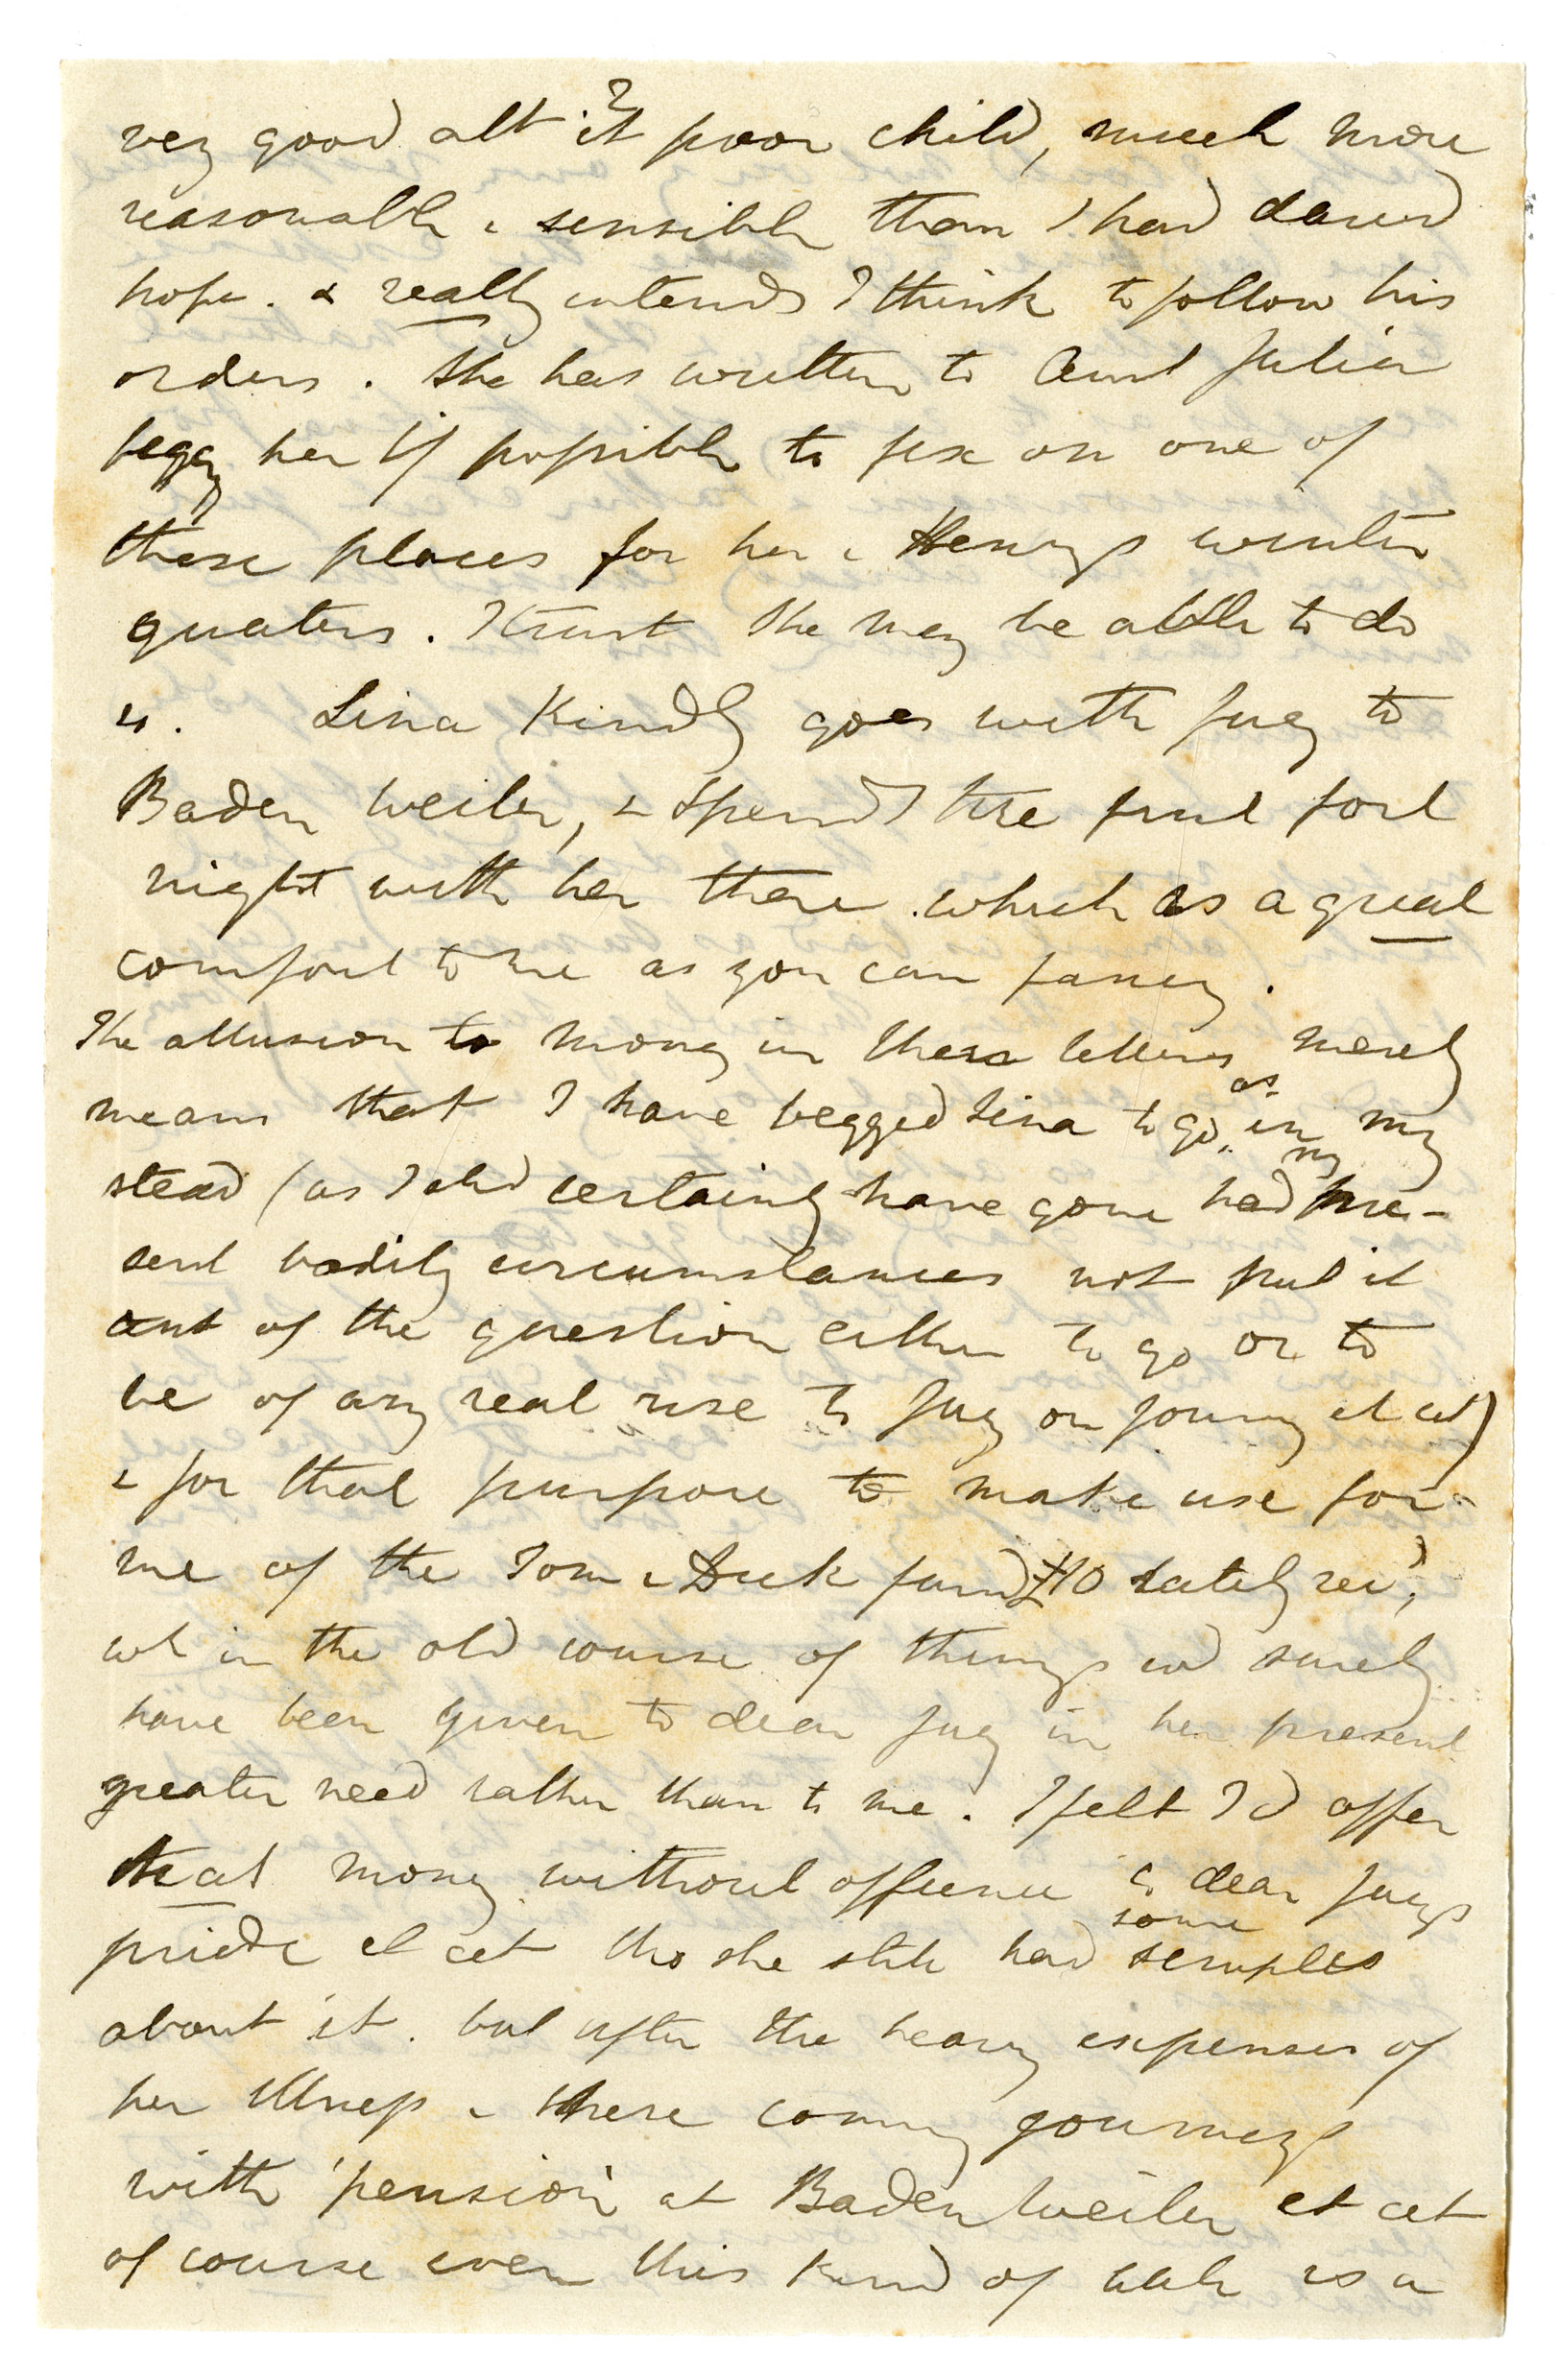 very good abt it poor child, much more
reasonable & sensible than I had dared
hope. & really intends I think to follow his
orders. She has written to Aunt Julia
begg her if possible to fix on one of
these places for her & Henrys winter
quaters. I trust she may be able to do
so. Lina kindly goes with Jug to
Baden Weiler, & spends the first fort
night with her there which is a great
comfort to me as you can fancy.
The allusion to money in these letters merely
means that I have begged Lina to go as in my
stead (as I shd certainly have gone had my pre-
sent bodily circumstances not put it
out of the question either to go or to
be of any real use to Jug on journey et cet)
& for that purpose to make use for
me of the Tom & Dick fund £10 lately recd,
wh in the old course of things wd surely
have been given to dear Jug in her present
greater need rather than to me. I felt I cd offer
that money without offence to dear Jugs
pride et cet tho she still had some scruples
about it. but after the heavy expenses of
her illness & these coming journeys
with 'pension' at Baden Weiler et cet
of course even this kind of little is a